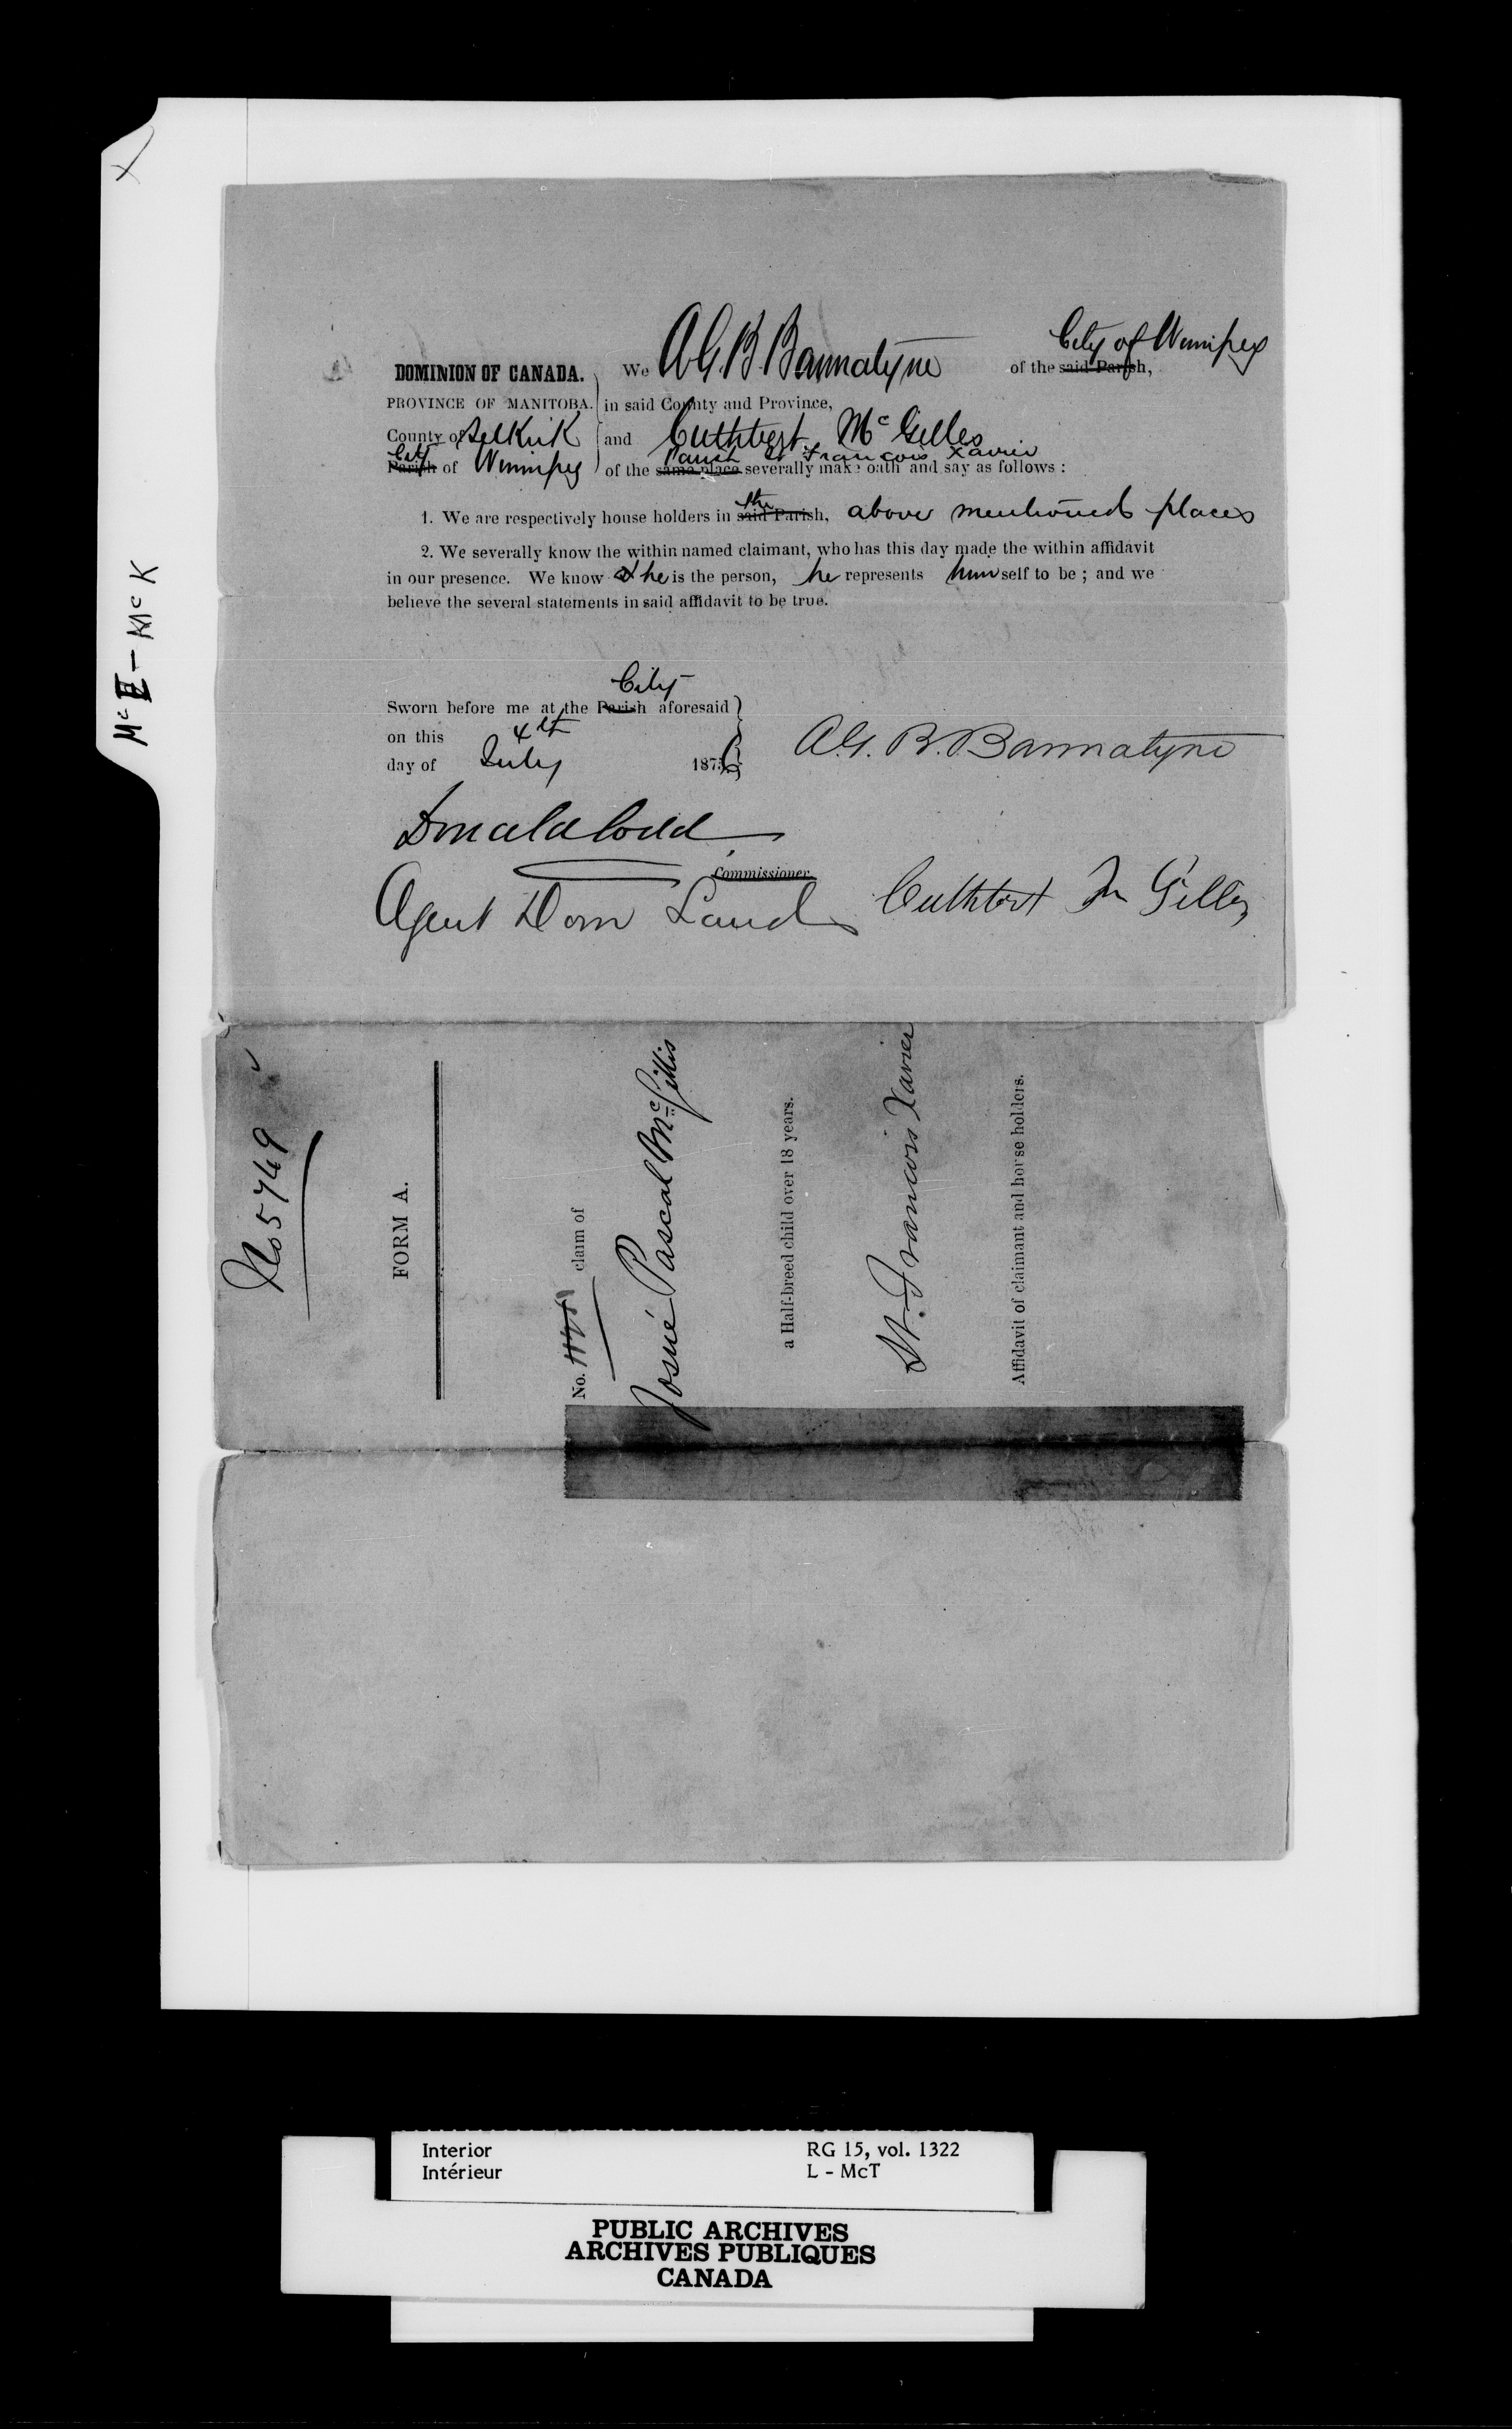 McE - McK
DOMINION OF CANADA.
PROVINCE OF MANITOBA.
County of Selkirk
City
Parish of Winnipeg
We A.G.B. Bannatyne of the said Parish, City of Winnipeg
in said County and Province,
and Cuthbert McGilles
Parish St Francois Xavier
of the same place severally make oath and say as follows :
the
1. We are respectively house holders in said Parish, above mentioned places
2. We severally know the within named claimant, who has this day made the within affidavit
in our presence. We know he is the person, he represents himself to be ; and we
believe the several statements in said affidavit to be true.
City
Sworn before me at the Parish aforesaid
on this 4th
day of July 1876
A.G.B. Bannatyne
Donald Codd
Commissioner.
Agent Dom Lands
Cuthbert Mc Gilles
No 5749
FORM A.
No. claim of
Josué Pascal McGillis
a Half-breed child over 18 years.
St. Francois Xavier
Affidavit of claimant and horse holders.
Interior RG 15, vol. 1322
Intérieur L - McT
PUBLIC ARCHIVES
ARCHIVES PUBLIQUES
CANADA